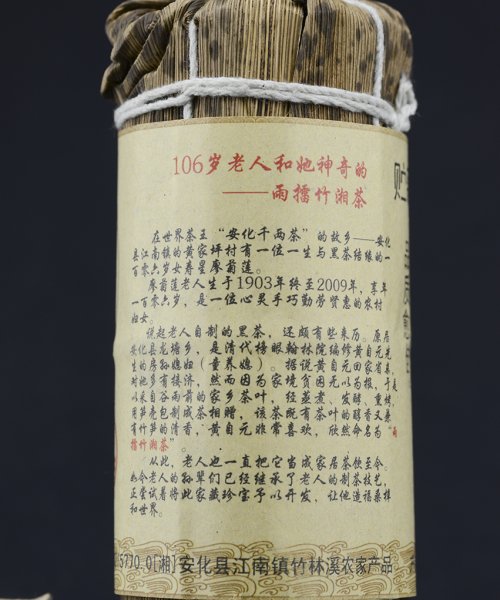 106岁老人和她神奇的
——雨擂竹湘茶
在世界茶王“安化千两茶”的故乡——安化
县江南镇的黄家坪村有一位一生与黑茶结缘的一
百零六岁女寿星廖菊莲。
廖菊莲老人生于1903年终至2009年，享年
一百零六岁，是一位心灵手巧勤劳贤惠的农村
妇女。
说起老人自制的黑茶，还颇有些来历。原居
安化县龙塘乡，是清代榜眼翰林院编修黄自元先
生的房孙媳妇（童养媳）。据说黄自元回家省亲，
对她多有接济，然而因为家境贫困无以为报，于是
以采自谷雨前的家乡茶叶，经蒸煮、发酵、重烤，
用笋壳包制成茶相赠，该茶既有茶叶的醇香又兼
有竹笋的清香，黄自元非常喜欢，欣然命名为“雨
擂竹湘茶”。
从此，老人也一直把它当成家居茶饮至今。
如今老人的孙辈们已经继承了老人的制茶技艺，
正尝试着将此家藏珍宝予以开发，让他造福桑梓
和世界。
5770.0[湘]安化县江南镇竹林溪农家产品